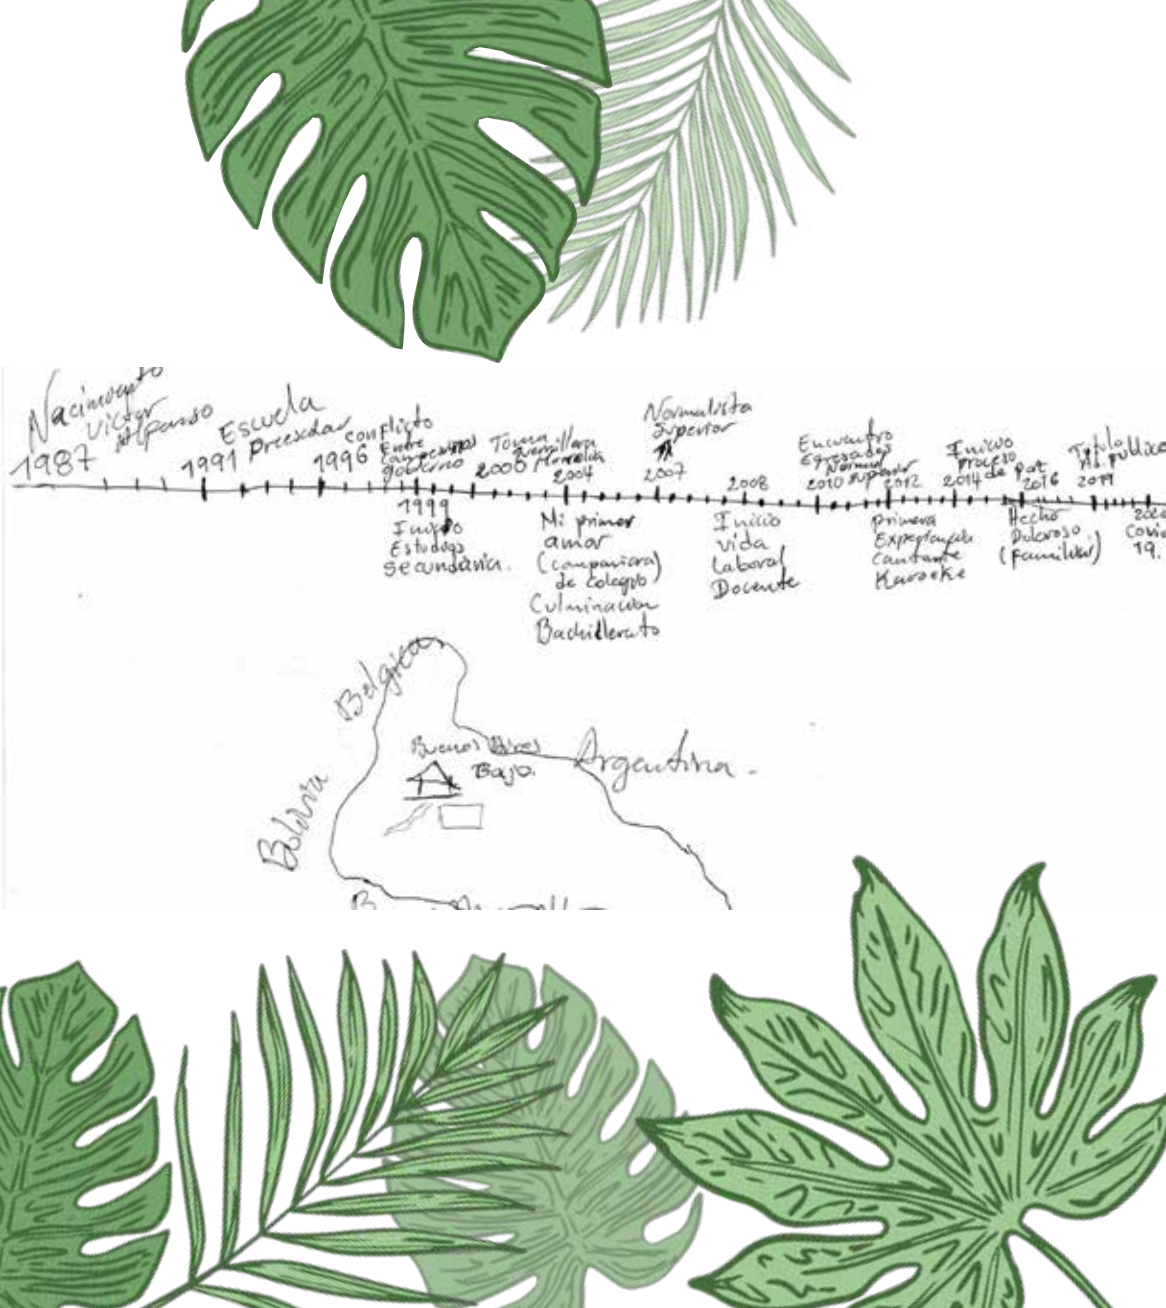 Nacimiento
Victor
Alfonso
1987
Escuela
Preescolar
1991
conflicto
Entre
campesinos
gobierno
1996
1999
Inicio
Estudios
secundaria.
Toma
Guerrillera
2000
2004
Mi primer
amor
(compañera)
de colegio
Culminación
Bachillerato
Normalista
Superior
2007
2008
Inicio
vida
Laboral
Docente
Encuentro
Egresados
Normal superior
2010
2012
primera
Cantante
Karaoke
Inicio
proceso
de Pat
2014
2016
Hecho
Doloroso.
(familiar)
Titulo
2019
2020
Covid
19.
Belgica
Buenos Aires
Bajo.
Argentina.
Bolivia